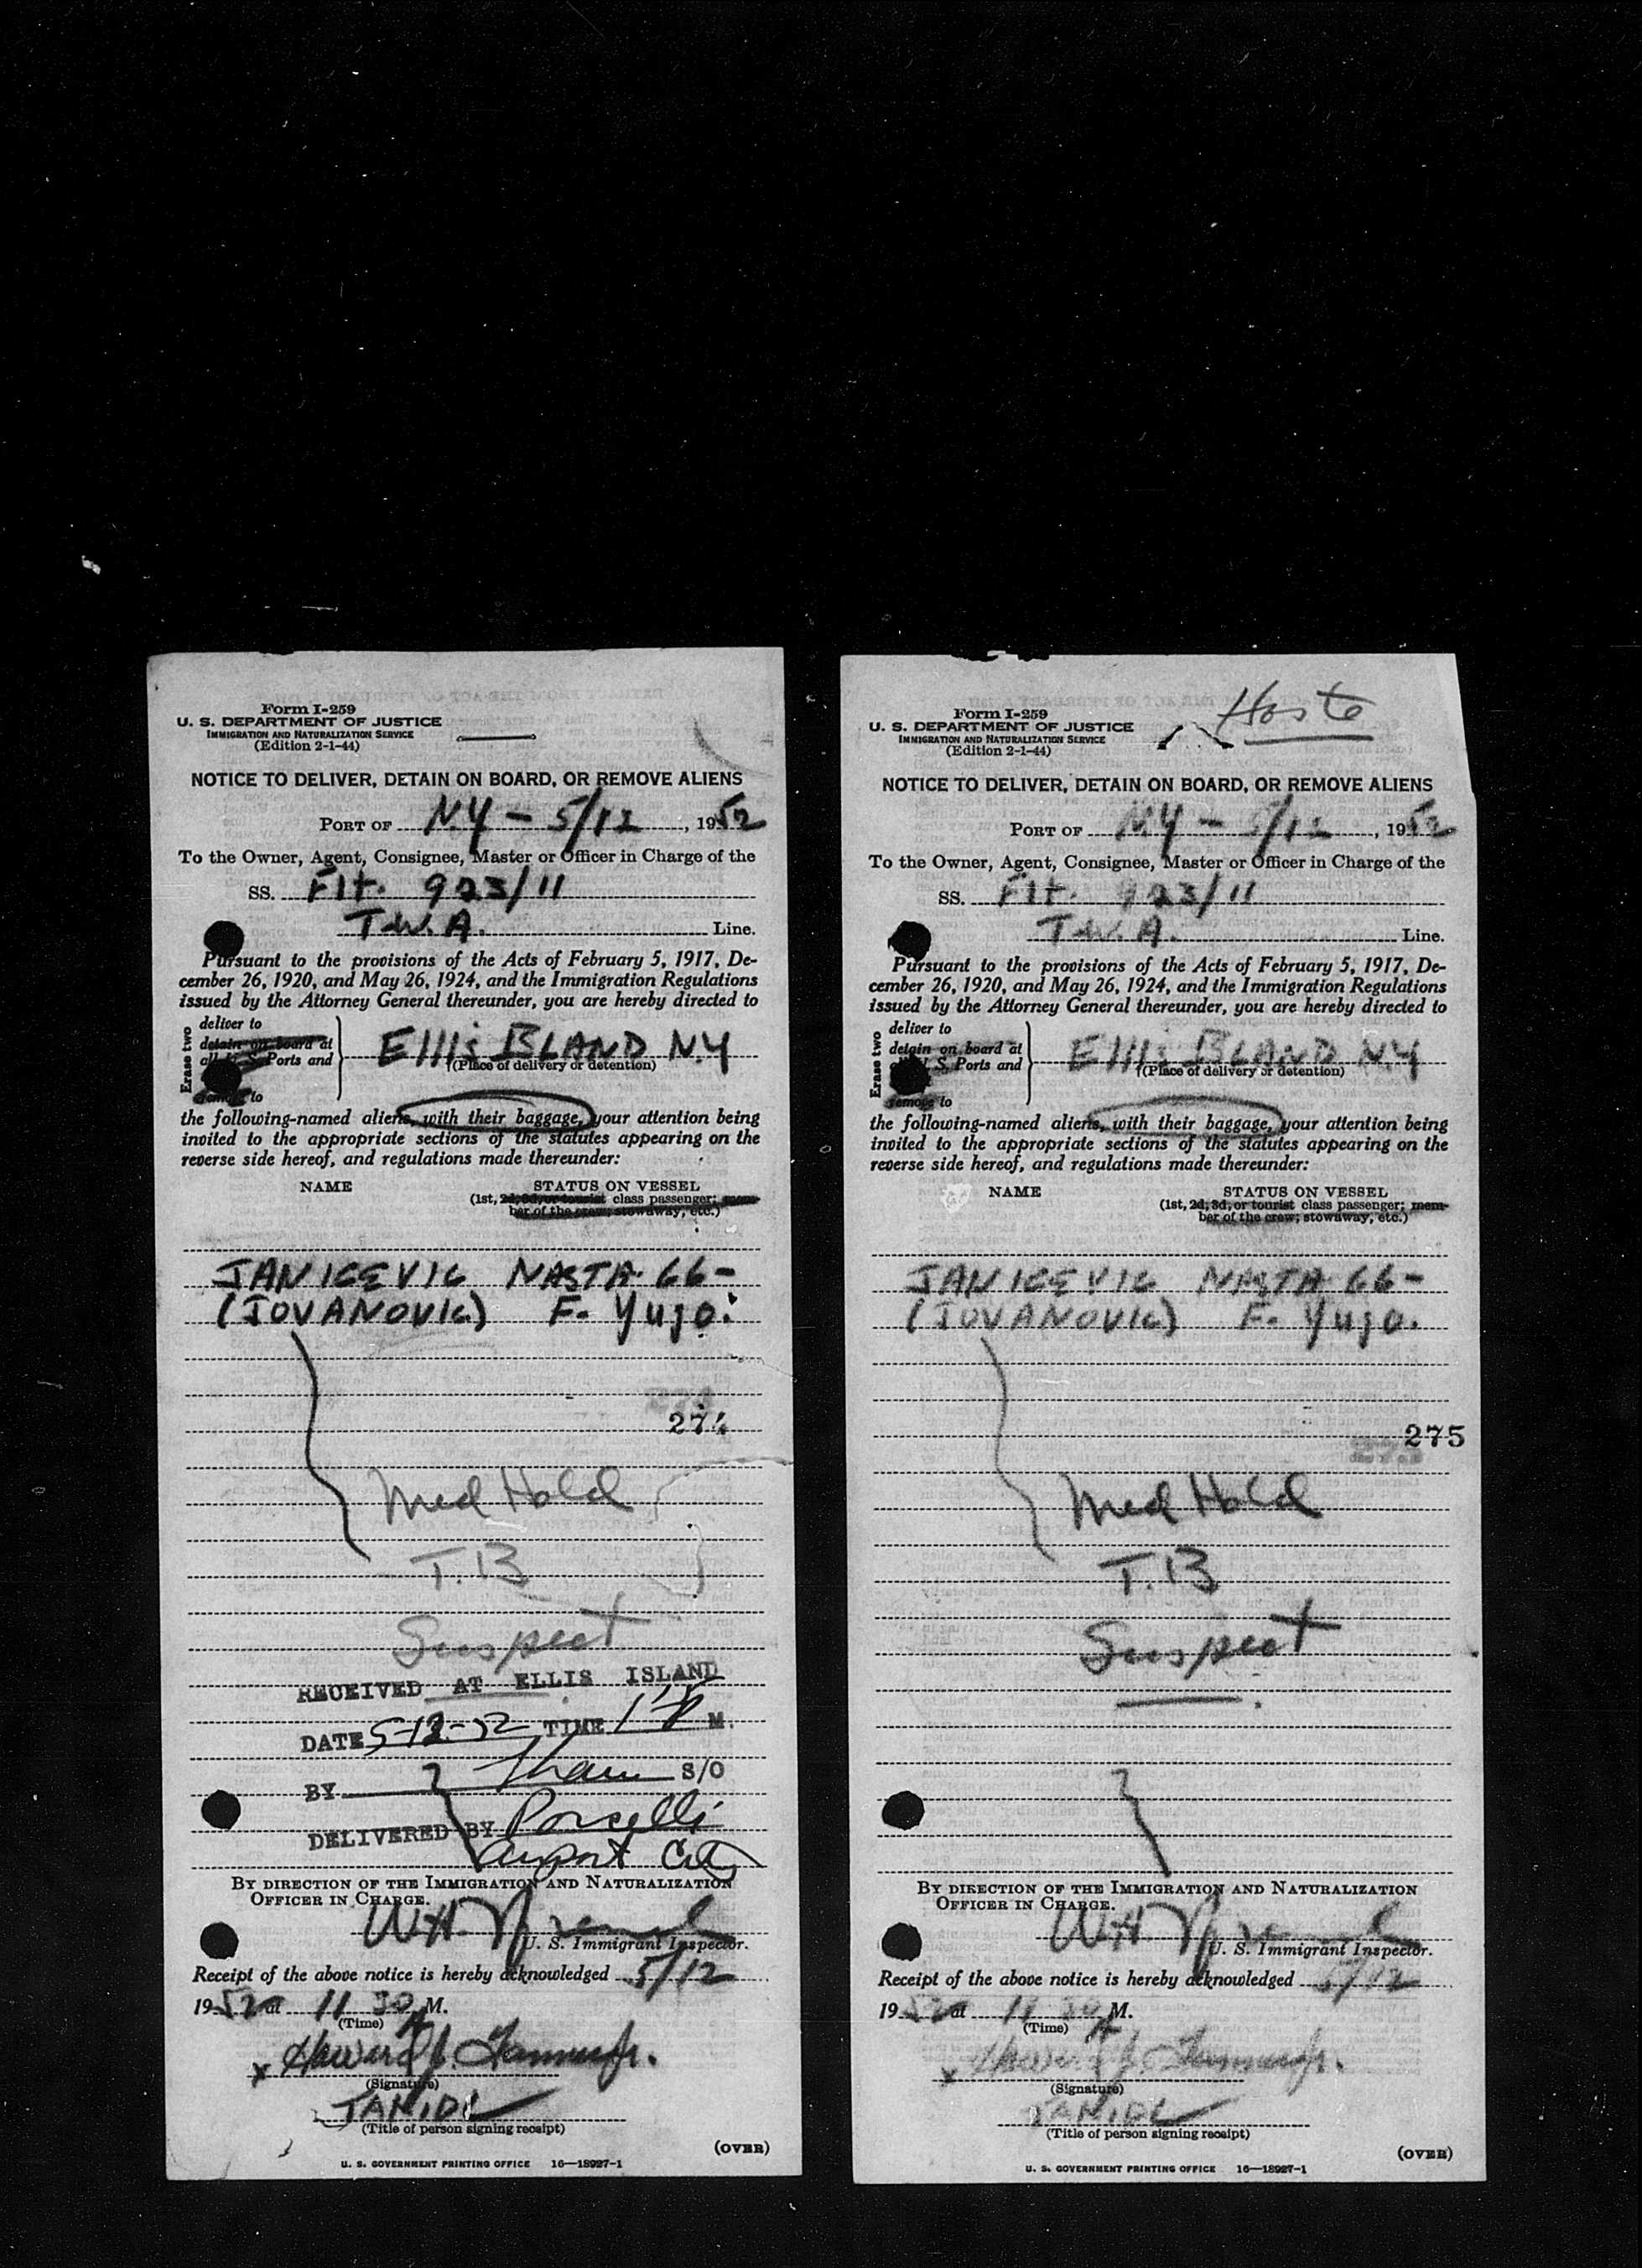 Form I-259
U. S. DEPARTMENT OF JUSTICE
IMMIGRATION AND NATURALIZATION SERVICE
(Edition 2-1-44)
NOTICE TO DELIVER, DETAIN ON BOARD, OR REMOVE ALIENS
PORT OF N.Y - 5/12, 1952
To the Owner, Agent, Consignee, Master or Officer in Charge of the
SS. Flt. 923/11
T.W.A. Line.
Pursuant to the provisions of the Acts of February 5, 1917, De-
cember 26, 1920, and May 26, 1924, and the Immigration Regulations
issued by the Attorney General thereunder, you are hereby directed to
Erase two
deliver to
detain on board at
all U. S. Ports and
remove to
Ellis ISLAND N.Y
(Place of delivery or detention)
the following-named aliens, with their baggage, your attention being
invited to the appropriate sections of the statutes appearing on the
reverse side hereof, and regulations made thereunder:
NAME STATUS ON VESSEL
(1st, 2d, 3d, or tourist class passenger; mem-
ber of the crew; stowaway, etc.)
JANICEVIC NASTA 66-
(JOVANOVIC) F. Yugo.
274
Med Hold
T.B
Suspect
RECEIVED AT ELLIS ISLAND
DATE 5-12-52 TIME 1 P M.
BY S/O
DELIVERED BY Porcelli
Airport
BY DIRECTION OF THE IMMIGRATION AND NATURALIZATION
OFFICER IN CHARGE.
W.H.
U. S. Immigrant Inspector.
Receipt of the above notice is hereby acknowledged 5/12
1952 at 11 30 A M.
(Time)
x Howard J.
(Signature)
(Title of person signing receipt)
(OVER)
U. S. GOVERNMENT PRINTING OFFICE 16—18927-1
Form I-259
U. S. DEPARTMENT OF JUSTICE
IMMIGRATION AND NATURALIZATION SERVICE
(Edition 2-1-44)
Hoste
NOTICE TO DELIVER, DETAIN ON BOARD, OR REMOVE ALIENS
PORT OF N.Y - 5/12, 1952
To the Owner, Agent, Consignee, Master or Officer in Charge of the
SS. Flt. 923/11
T.W.A. Line.
Pursuant to the provisions of the Acts of February 5, 1917, De-
cember 26, 1920, and May 26, 1924, and the Immigration Regulations
issued by the Attorney General thereunder, you are hereby directed to
Erase two
deliver to
detain on board at
all U. S. Ports and
remove to
Ellis ISLAND N.Y
(Place of delivery or detention)
the following-named aliens, with their baggage, your attention being
invited to the appropriate sections of the statutes appearing on the
reverse side hereof, and regulations made thereunder:
NAME STATUS ON VESSEL
(1st, 2d, 3d, or tourist class passenger; mem-
ber of the crew; stowaway, etc.)
JANICEVIC NASTA 66-
(JOVANOVIC) F. Yugo.
275
Med Hold
T.B
Suspect
BY DIRECTION OF THE IMMIGRATION AND NATURALIZATION
OFFICER IN CHARGE.
W.H.
U. S. Immigrant Inspector.
Receipt of the above notice is hereby acknowledged 5/12
1952 at 11 30 A M.
(Time)
x Howard J.
(Signature)
(Title of person signing receipt)
(OVER)
U. S. GOVERNMENT PRINTING OFFICE 16—18927-1